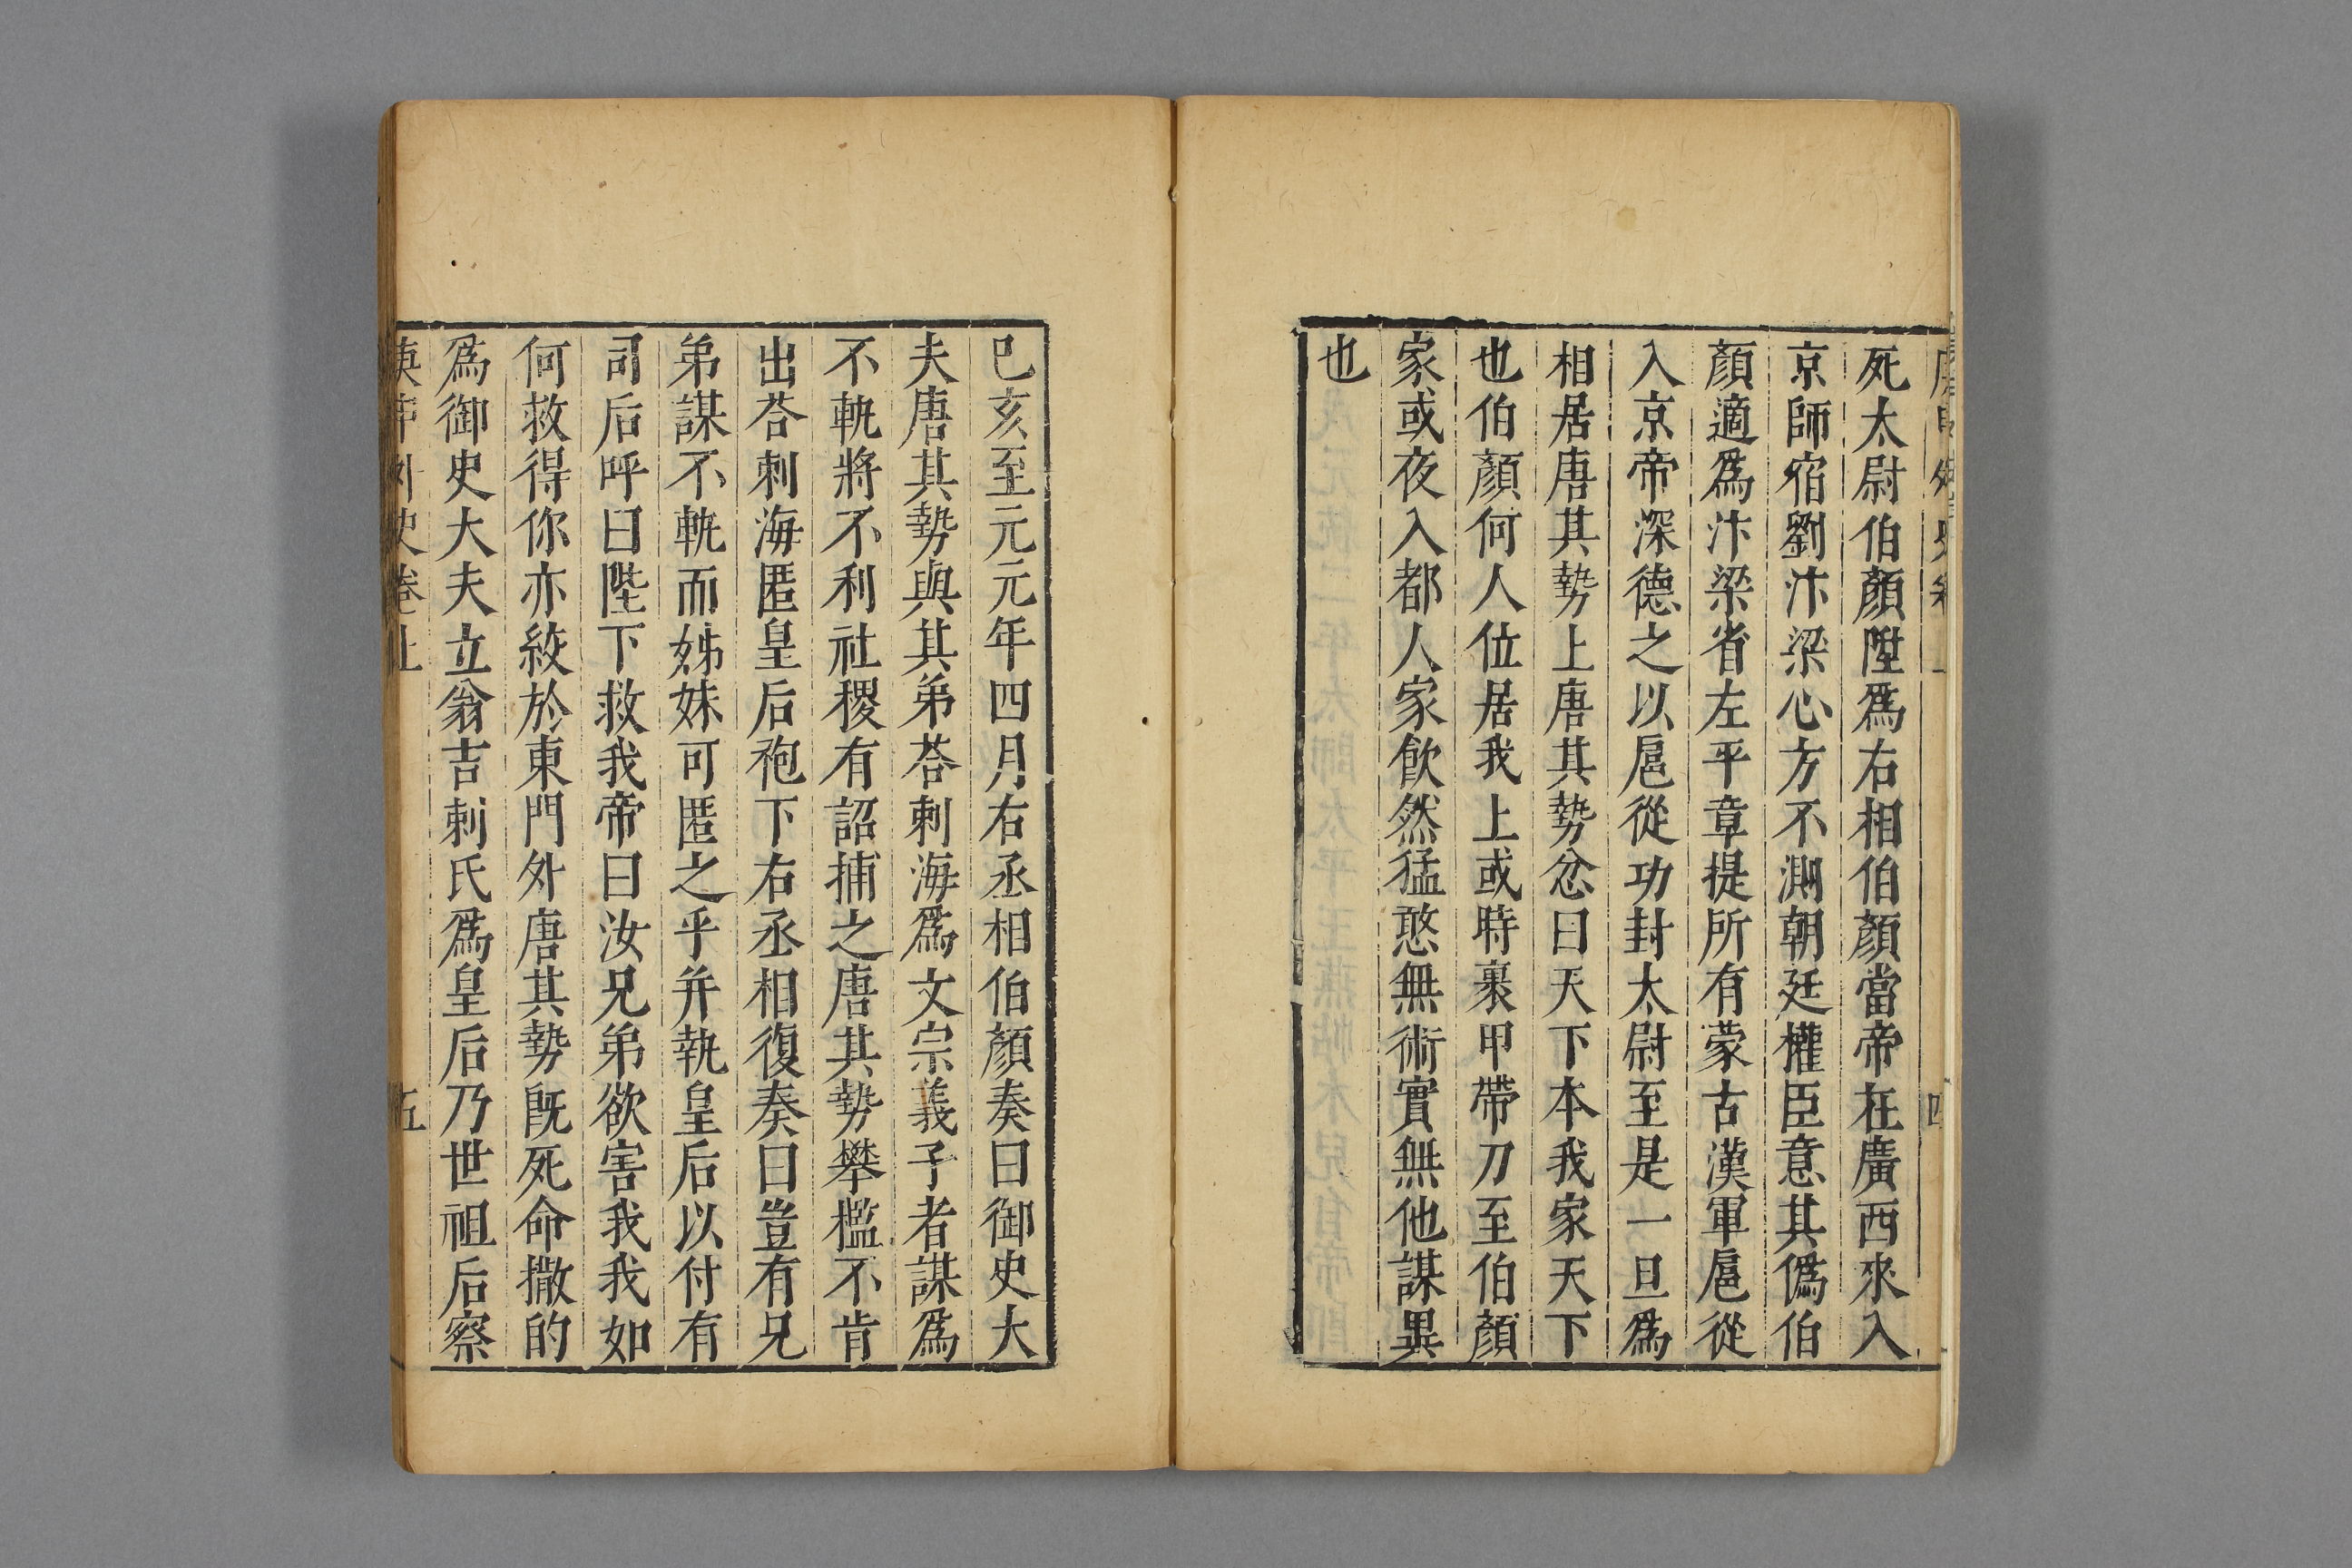 死太尉伯顏陞爲右相伯顏當帝在廣西來入
京師宿劉汴梁心方不測朝廷權臣意其僞伯
顏適爲汴梁省左平章提所有蒙古漢軍扈從
入京帝深德之以扈從功封太尉至是一旦爲
相居唐其勢上唐其勢忿曰天下本我家天下
也伯顏何人位居我上或時裹甲帶刀至伯顏
家或夜入都人家飲然猛憨無術實無他謀異
也
己亥至元元年四月右丞相伯顏奏曰御史大
夫唐其勢與其弟荅剌海爲文宗義子者謀爲
不軌將不利社稷有詔捕之唐其勢攀檻不肯
出荅剌海匿皇后袍下右丞相復奏曰豈有兄
弟謀不軌而姊妹可匿之乎并執皇后以付有
司后呼曰陛下救我帝曰汝兄弟欲害我我如
何救得你亦絞於東門外唐其勢既死命撒的
爲御史大夫立翁吉剌氏爲皇后乃世祖后察
庚申外史卷上
五